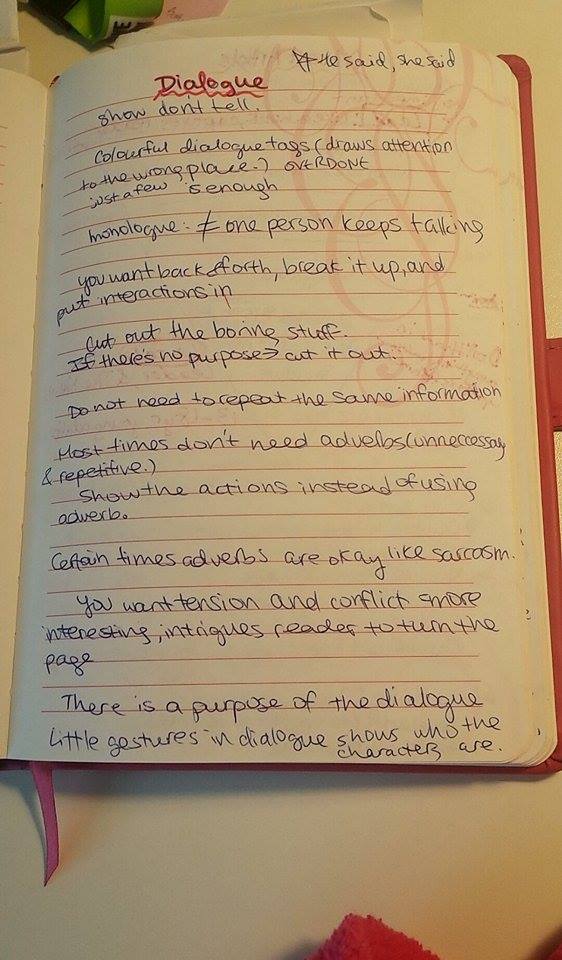 * He said, she said
Dialogue
show don't tell.
Colourful dialogue tags (draws attention
to the wrong place.) OVERDONE
just a few is enough
monologue: ≠ one person keeps talking
you want back & forth, break it up, and
put interactions in
Cut out the boring stuff.
If there's no purpose → cut it out.
Do not need to repeat the same information
Most times don't need adverbs (unneccessary
& repetitive.)
Show the actions instead of using
adverb.
Certain times adverbs are okay like sarcasm.
You want tension and conflict more
interesting, intrigues reader to turn the
page
There is a purpose of the dialogue
Little gestures in dialogue shows who the
characters are.